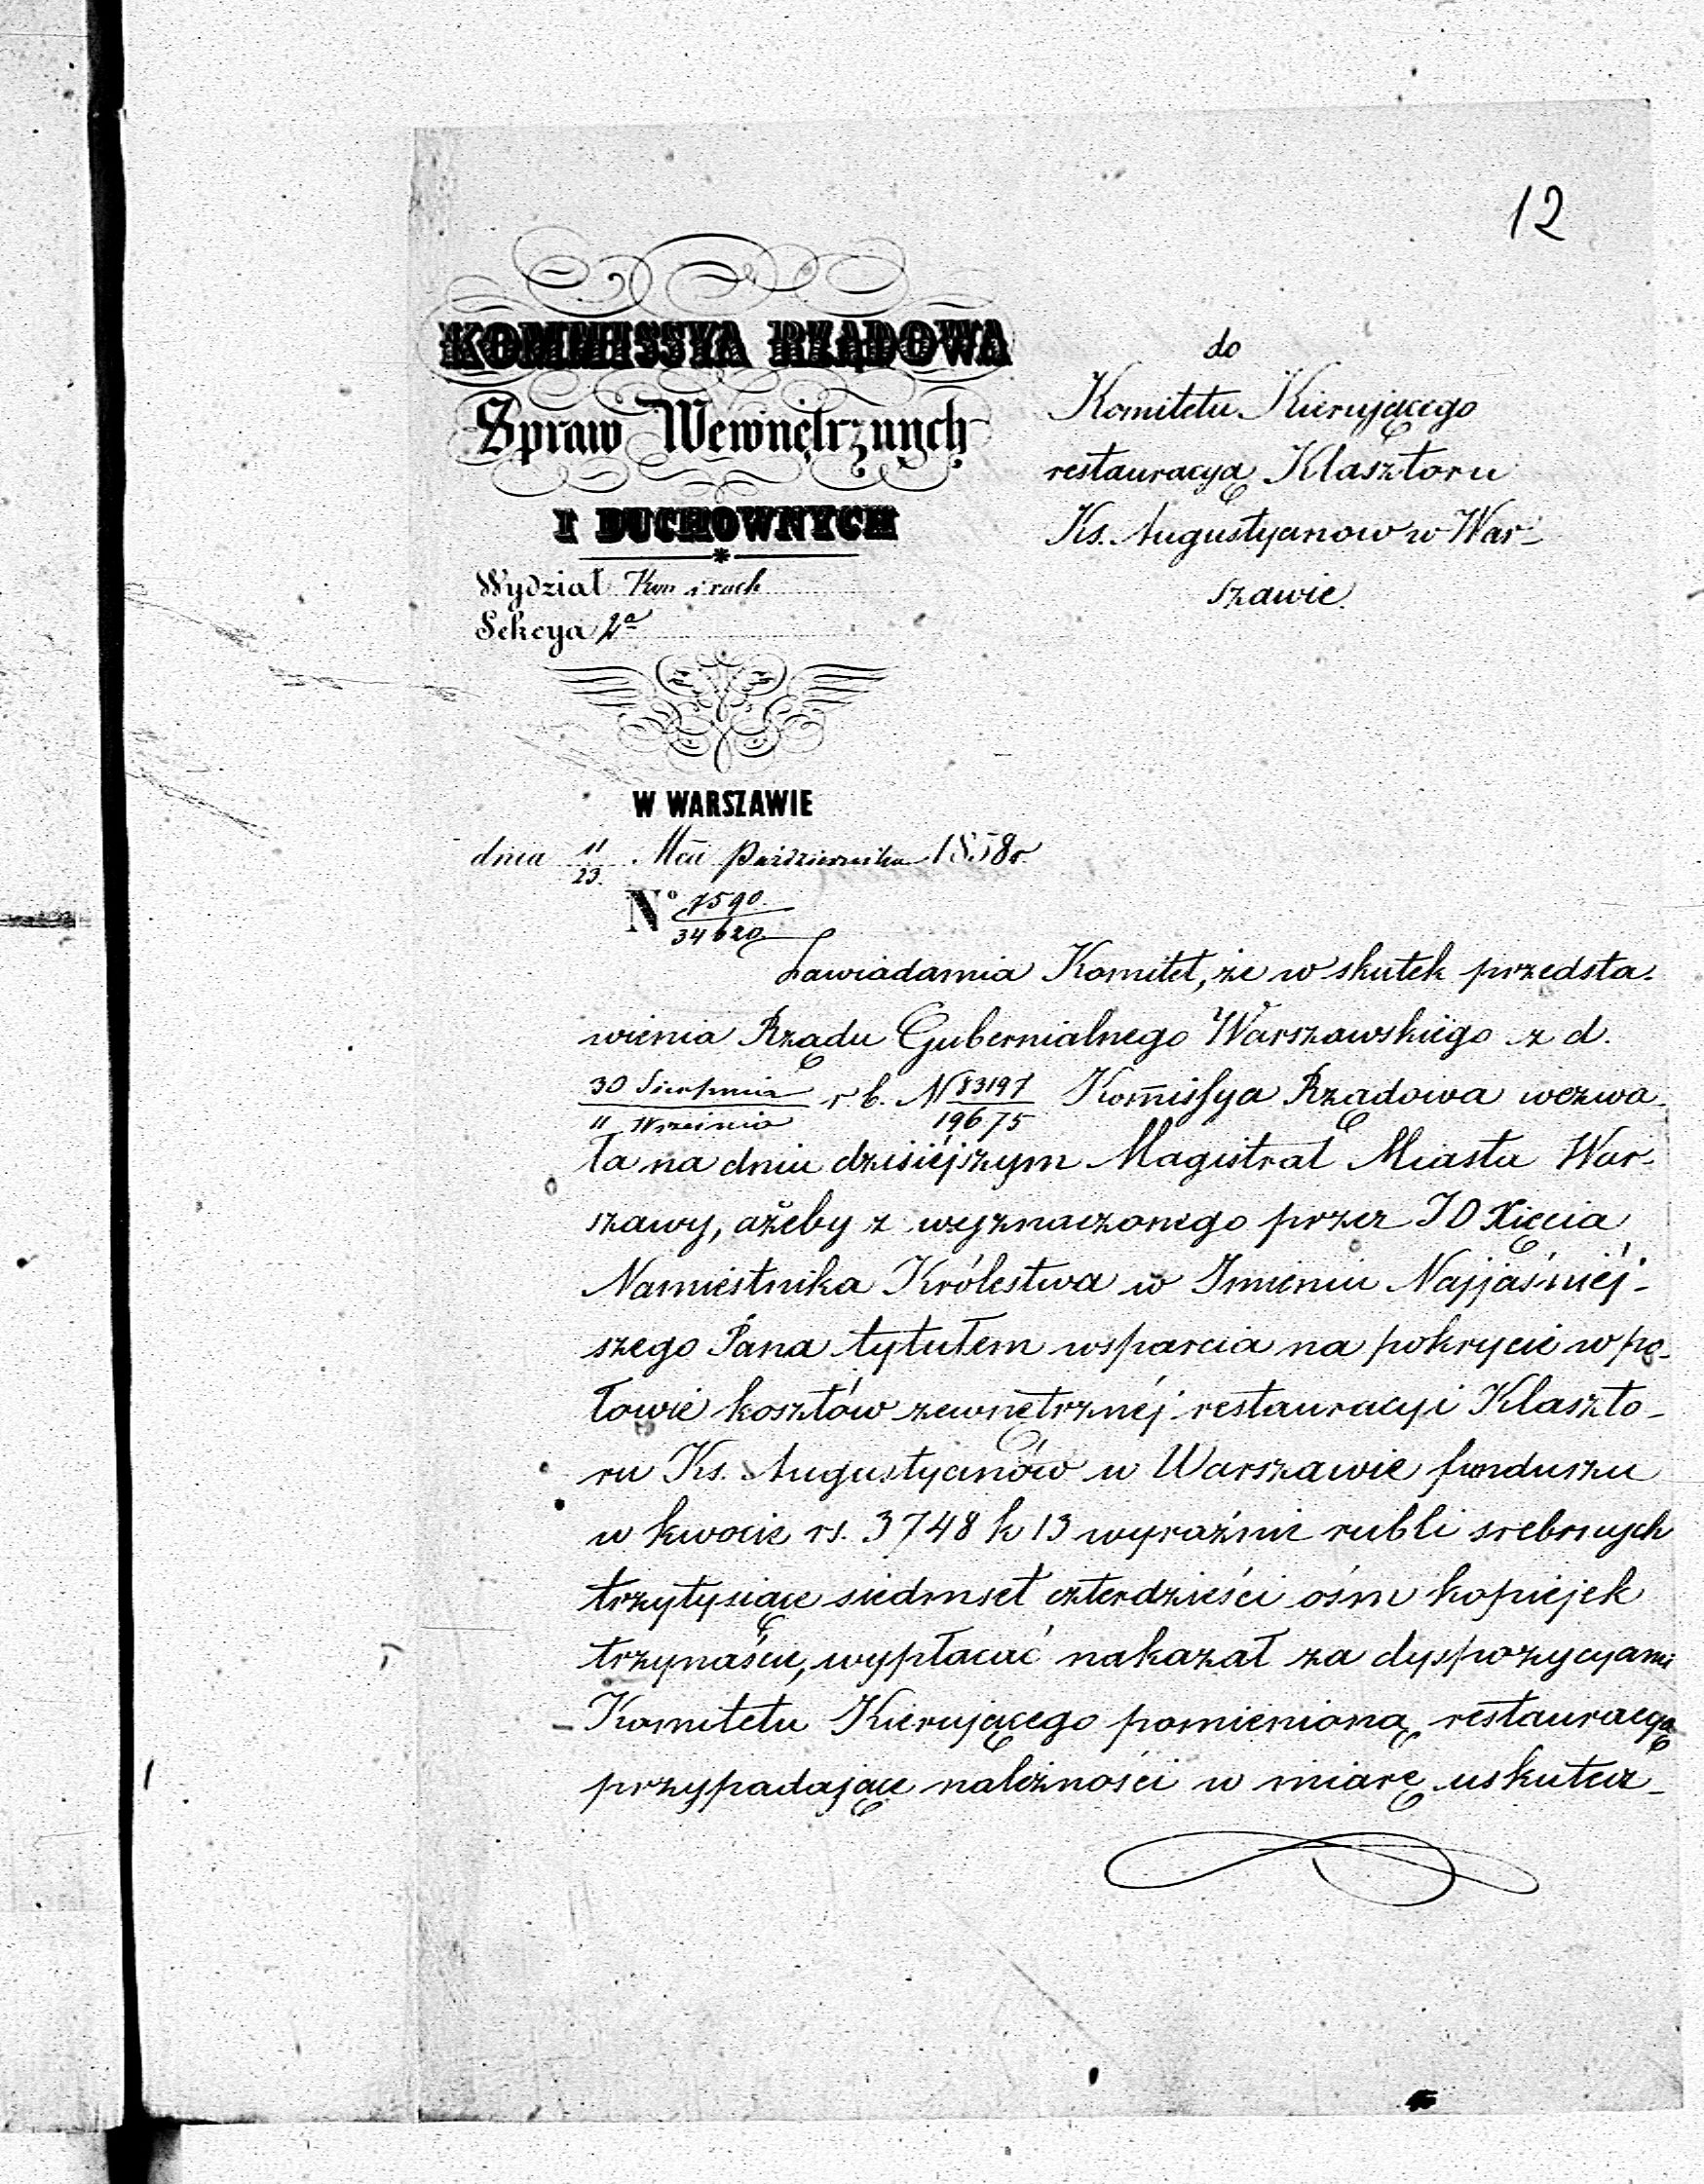 12
KOMMISSYA RZĄDOWA
Spraw Wewnętrznych
I DUCHOWNYCH
Wydział Kun i rach
Sekcya 2a
W WARSZAWIE
dnia 11/23. Mca Października 1858 r.
No 7590/34620
do
Komitetu Kierującego
restauracyą Klasztoru
Ks. Augustyanow w War-
szawie.
Zawiadamia Komitet, że w skutek przedsta-
wienia Rządu Gubernialnego Warszawskiégo z d.
30 Sierpnia/11 Września r. b. N 83197/19675 Kom̄issya Rządowa wezwa-
ła na dniu dzisiéjszym Magistrat Miasta War-
szawy, ażeby z wyznaczonego przez JO Xięcia
Namiestnika Królestwa w Imieniu Najjaśniéj-
szego Pana tytułem wsparcia na pokrycie w po-
łowie kosztów zewnętrznéj restauracyi Klaszto-
ru Ks. Augustyanów w Warszawie funduszu
w kwocie rs. 3748 k 13 wyraźnie rubli srebrnych
trzytysiące siedmset czterdzieści ośm kopiejek
trzynaście, wypłacać nakazał za dyspozycyami
Komitetu Kierującego pomienioną restauracyą
przypadające należności w miarę uskutecz-